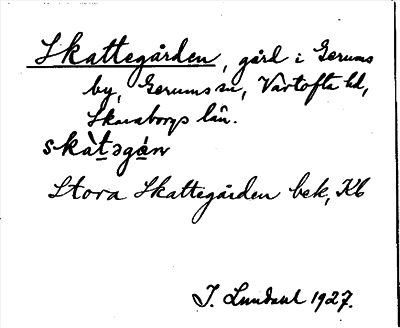 Skattegården, gård i Gerums
by, Gerums sn, Vartofta hd,
Skaraborgs län.
skàt̠əgá̠n
Stora Skattegården bek, Kb
J. Lundahl 1927.